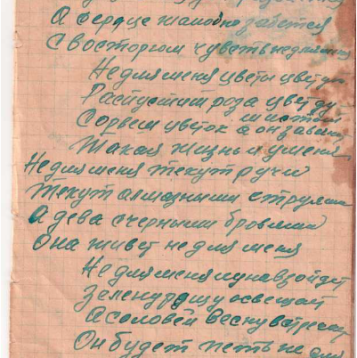 А сердце жалобно забьется
С восторгом чувств не для меня
Не для меня цветы цветут
Распустит роза цвет ду
Сорвеш цветок а он завянет
Такая жизнь и у меня
Не для меня текут ручи
Текут алмазними струями
А дева с черными бровями
Она живет не для меня
Не для меня луна взойдет
Зелену рощу освещат
А соловей весну встреча
Он будет петь не для